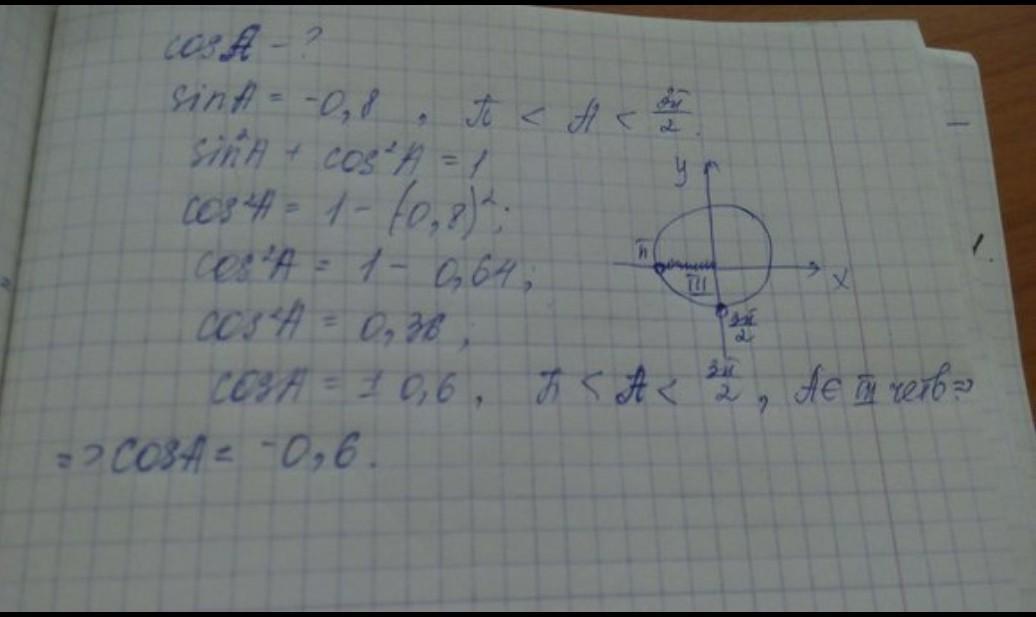 cosA - ?
sinA = -0,8 , π < A < 3π/2.
sin²A + cos²A = 1
cos²A = 1 - (-0,8)²;
cos²A = 1 - 0,64;
cos²A = 0,36;
cosA = ± 0,6, π < A < 3π/2, A ∈ III четв =>
=> cosA = -0,6.
y
π
III
x
3π/2
1.